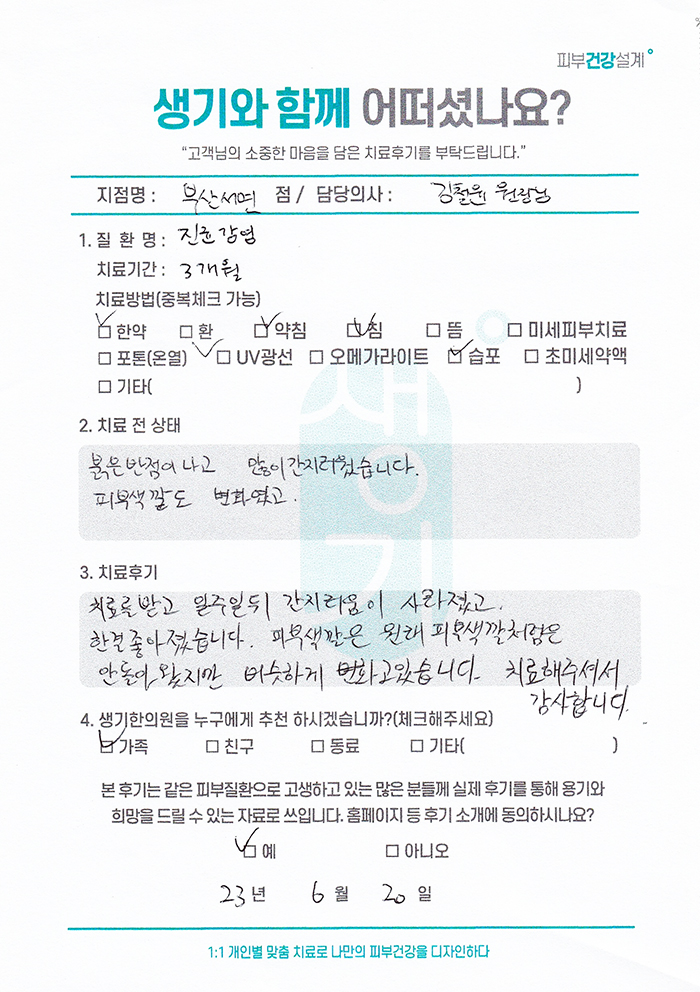 피부건강설계
생기와 함께 어떠셨나요?
“고객님의 소중한 마음을 담은 치료후기를 부탁드립니다.”
지점명 : 부산서면 점 / 담당의사 : 김철윤 원장님
1. 질 환 명 : 진균감염
치료기간 : 3개월
치료방법(중복체크 가능)
☑ 한약 □ 환 ☑ 약침 ☑ 침 □ 뜸 □ 미세피부치료
□ 포톤(온열) ☑ UV광선 □ 오메가라이트 ☑ 습포 □ 초미세약액
□ 기타( )
2. 치료 전 상태
붉은반점이 나고 많이 간지러웠습니다.
피부색깔도 변화였고.
3. 치료후기
치료를 받고 일주일뒤 간지러움이 사라졌고.
한결 좋아졌습니다. 피부색깔은 원래 피부색깔처럼은
안돌아왔지만 비슷하게 변화고있습니다. 치료해주셔서
감사합니다.
4. 생기한의원을 누구에게 추천 하시겠습니까?(체크해주세요)
☑ 가족 □ 친구 □ 동료 □ 기타( )
본 후기는 같은 피부질환으로 고생하고 있는 많은 분들께 실제 후기를 통해 용기와
희망을 드릴 수 있는 자료로 쓰입니다. 홈페이지 등 후기 소개에 동의하시나요?
☑ 예 □ 아니오
23년 6월 20일
1:1 개인별 맞춤 치료로 나만의 피부건강을 디자인하다
생기